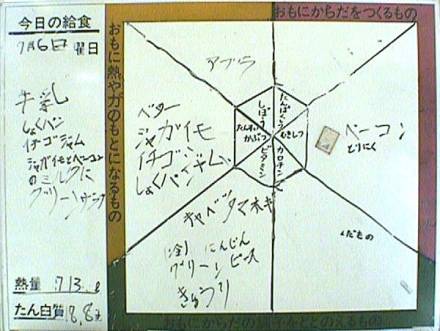 今日の給食
7月6日 曜日
牛乳
しょくパン
イチゴジャム
ジャガイモとベーコン
のミルクに
グリーンサラダ
熱量 713
たん白質
おもに熱や力のもとになるもの
おもにからだをつくるもの
アブラ
バター
ジャガイモ
イチゴジャム
しょくパン
しぼう
たんぱく
たんすい
かぶつ
むきしつ
ビタミン
カロチン
ベーコン
とりにく
キャベツタマネギ
にんじん
グリーンピース
きゅうり
くだもの